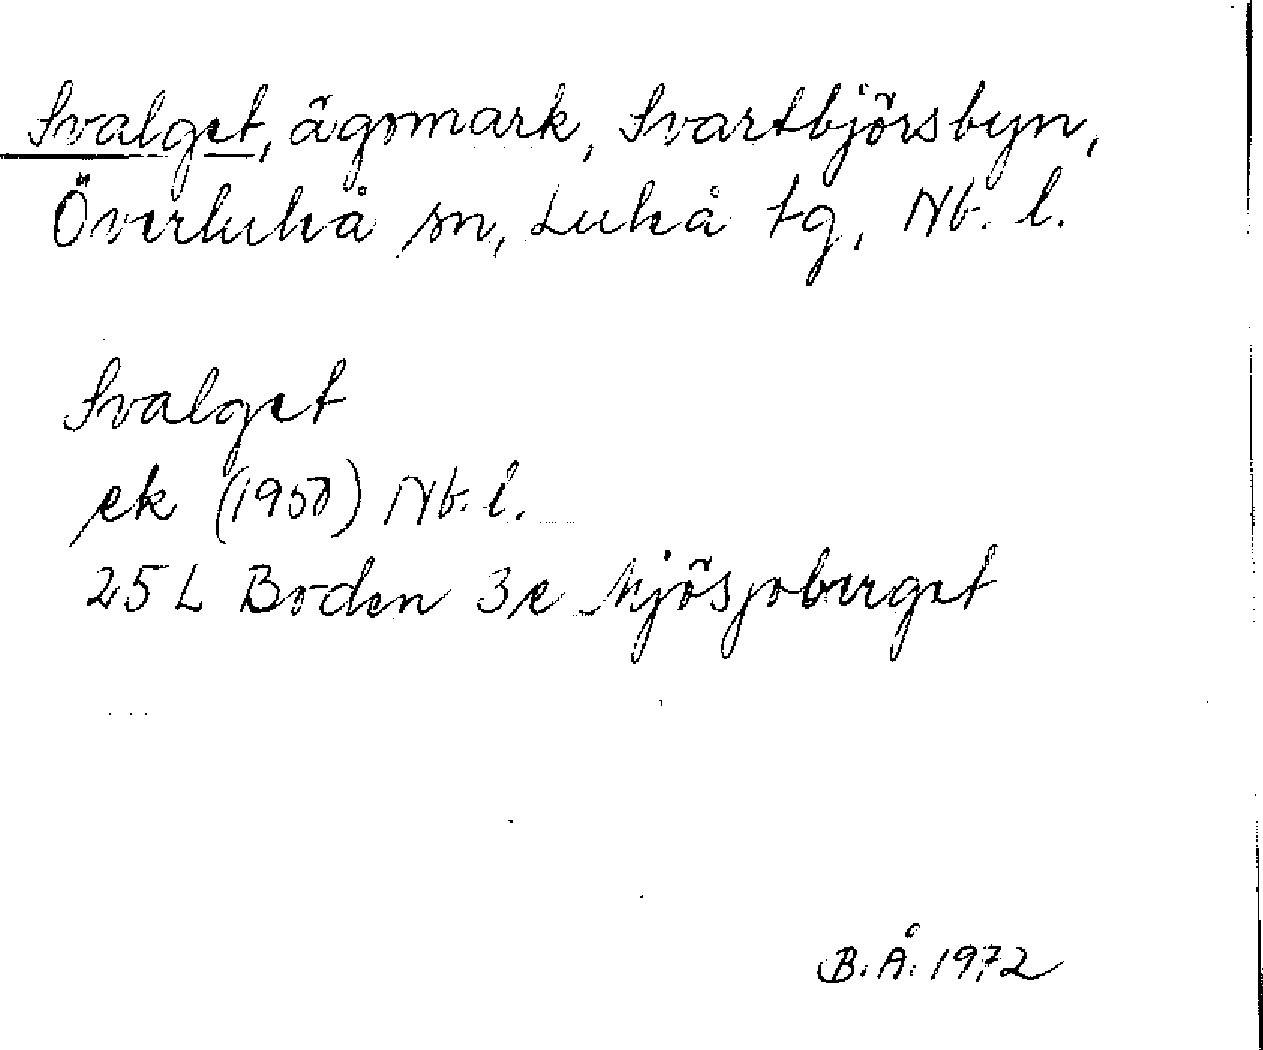 Svalget, ägomark, Svartbjörsbyn,
Överluleå sn, Luleå tg, Nb. l.
Svalget
ek (1950) Nb. l.
25 L Boden 3e Mjösjöberget
B. Å. 1972